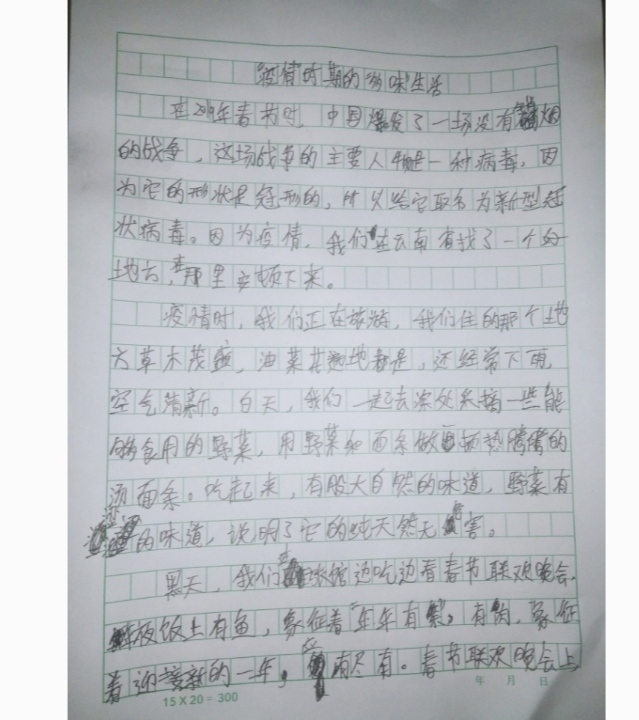 疫情时期的多味生活
在2019年春节时,中国爆发了一场没有硝烟
的战争,这场战争的主要人物是一种病毒,因
为它的形状是冠形的,所以给它取名为新型冠
状病毒。因为疫情,我们在云南省找了一个好
地方,在那里安顿下来。
疫情时,我们正在旅游,我们住的那个地
方草木茂盛,油菜花遍地都是,还经常下雨,
空气清新。白天,我们一起去深处采摘一些能
够食用的野菜,用野菜和面条做出一碗热腾腾的
汤面条。吃起来,有股大自然的味道,野菜有
的味道,说明了它的纯天然无害。
黑天,我们在宾馆边吃边看春节联欢晚会,
年夜饭上有鱼,象征着“年年有余”,有肉,象征
着迎接新的一年,应有尽有。春节联欢晚会上
15×20=300
年 月 日